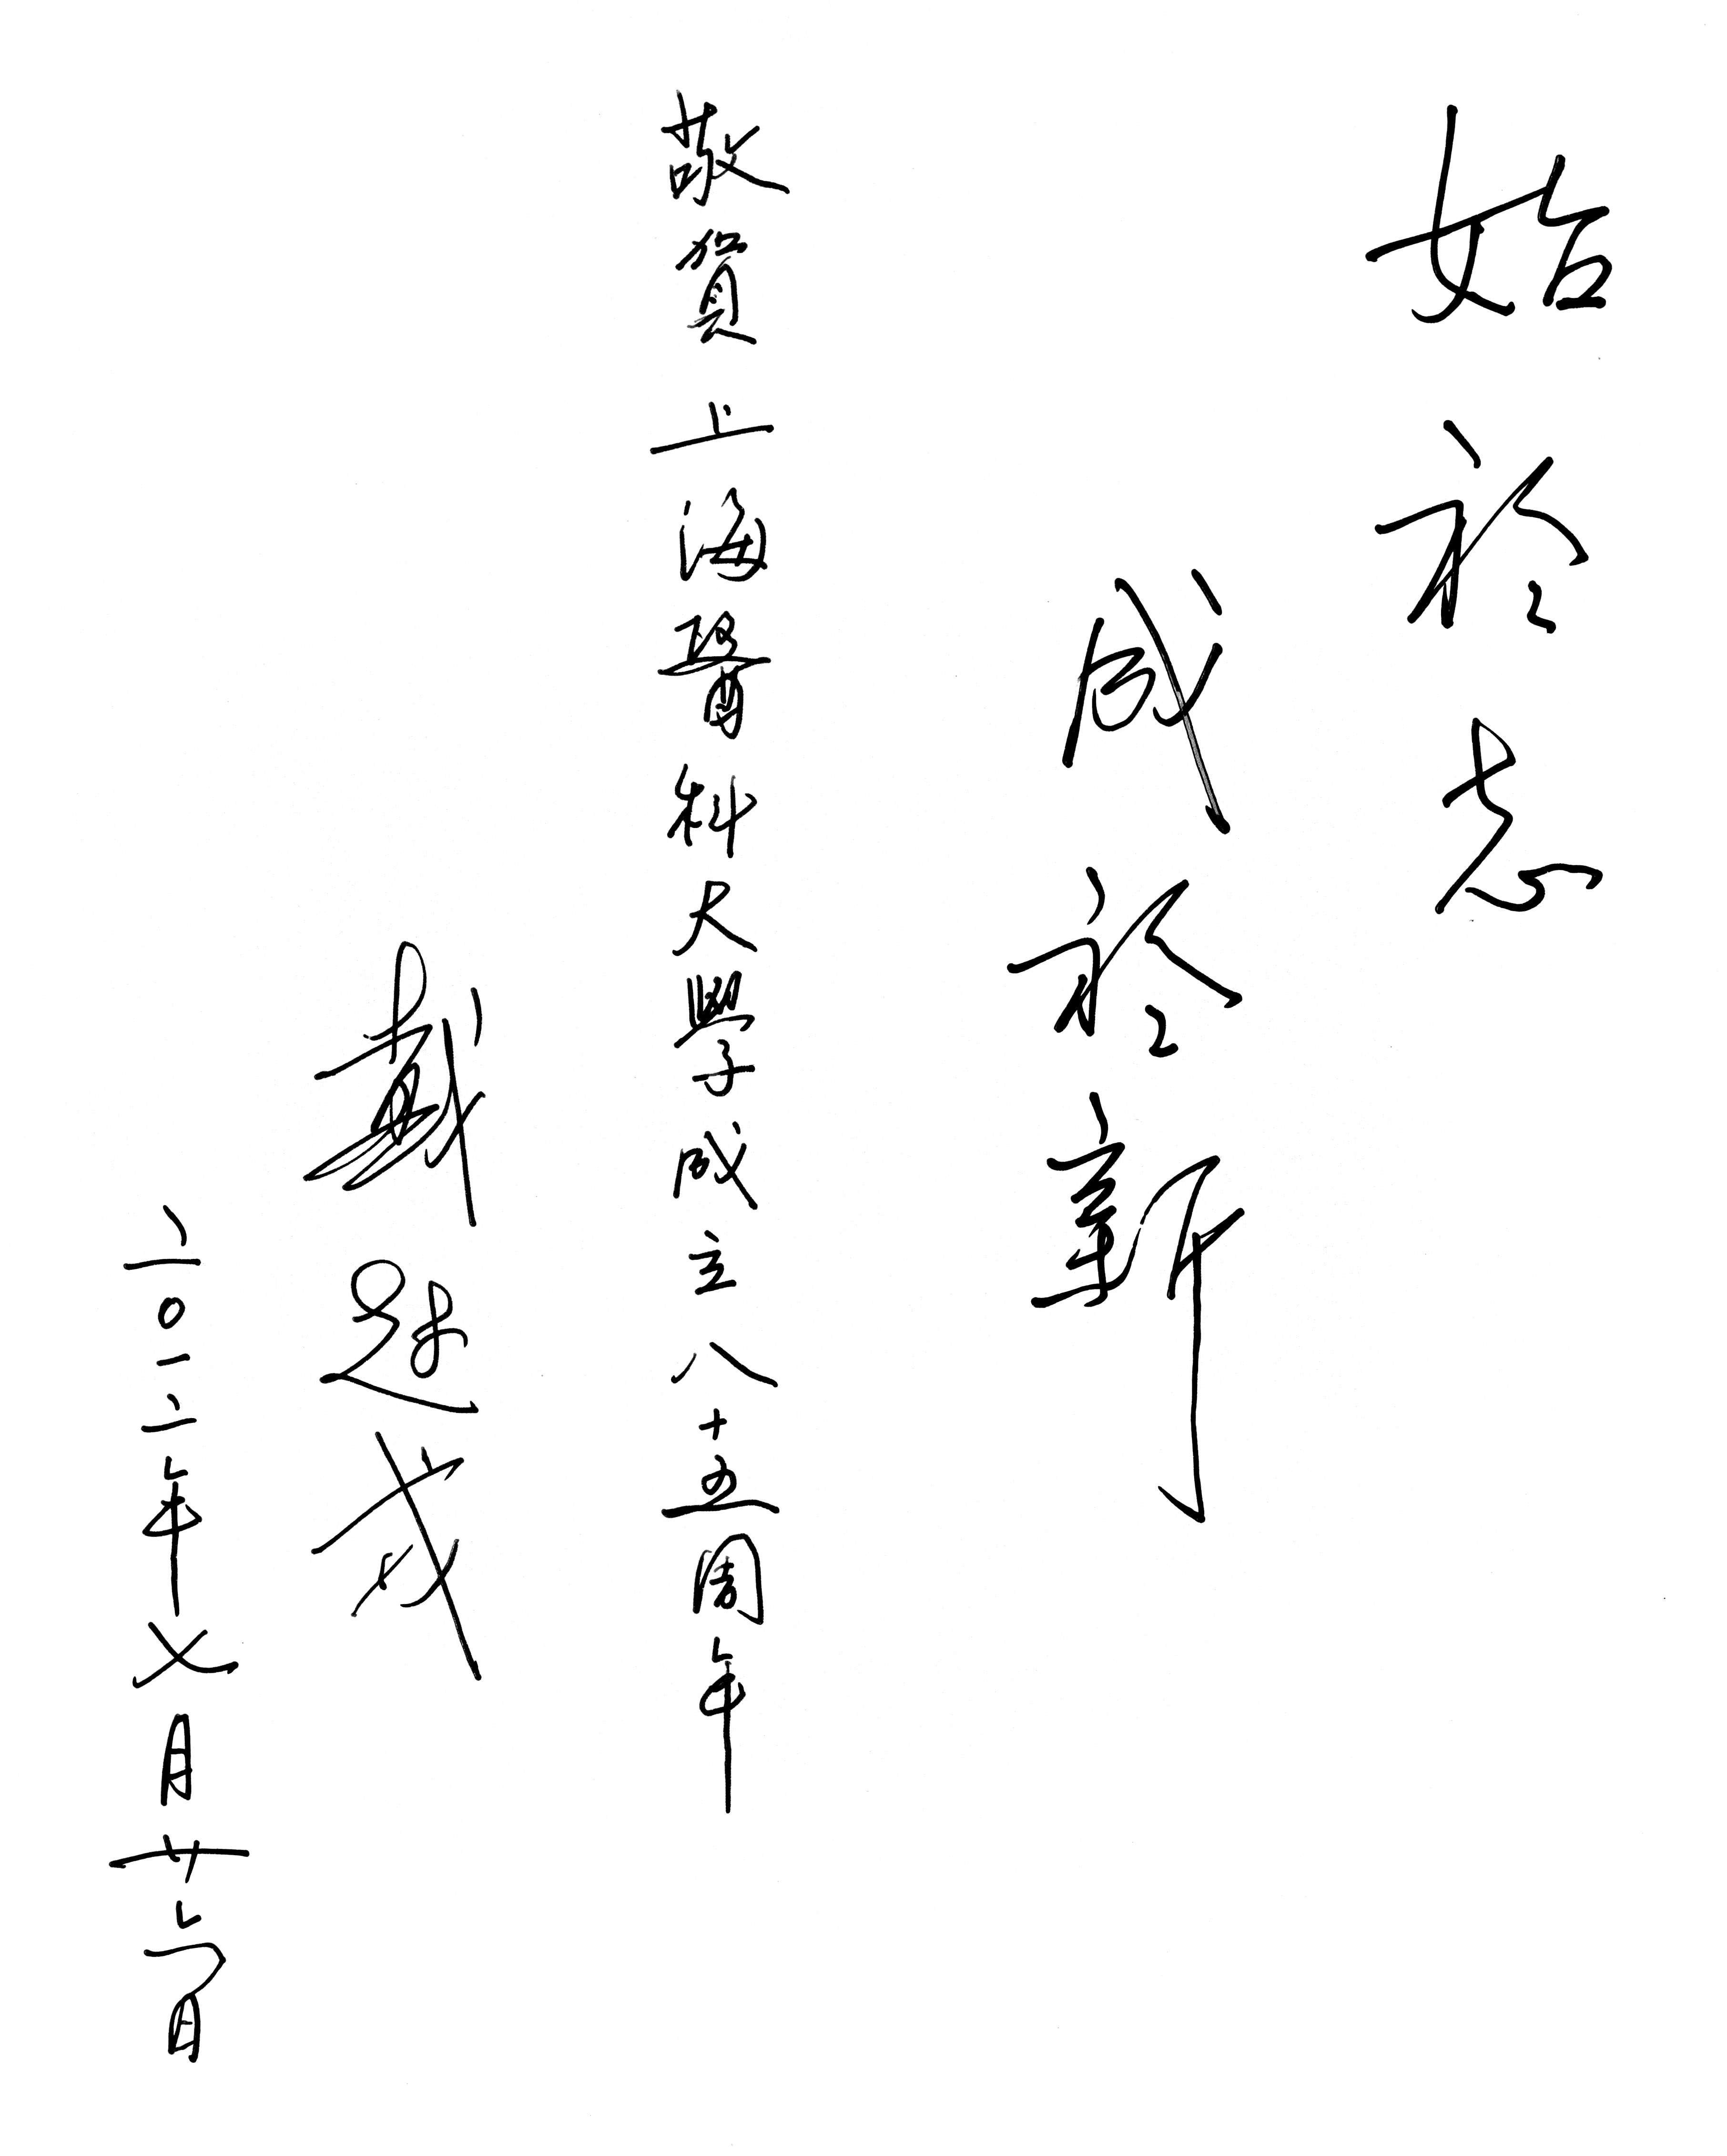 始於志
成於新
敬賀上海醫科大學成立八十五周年
戴尅戎
二〇一二年七月廿六日